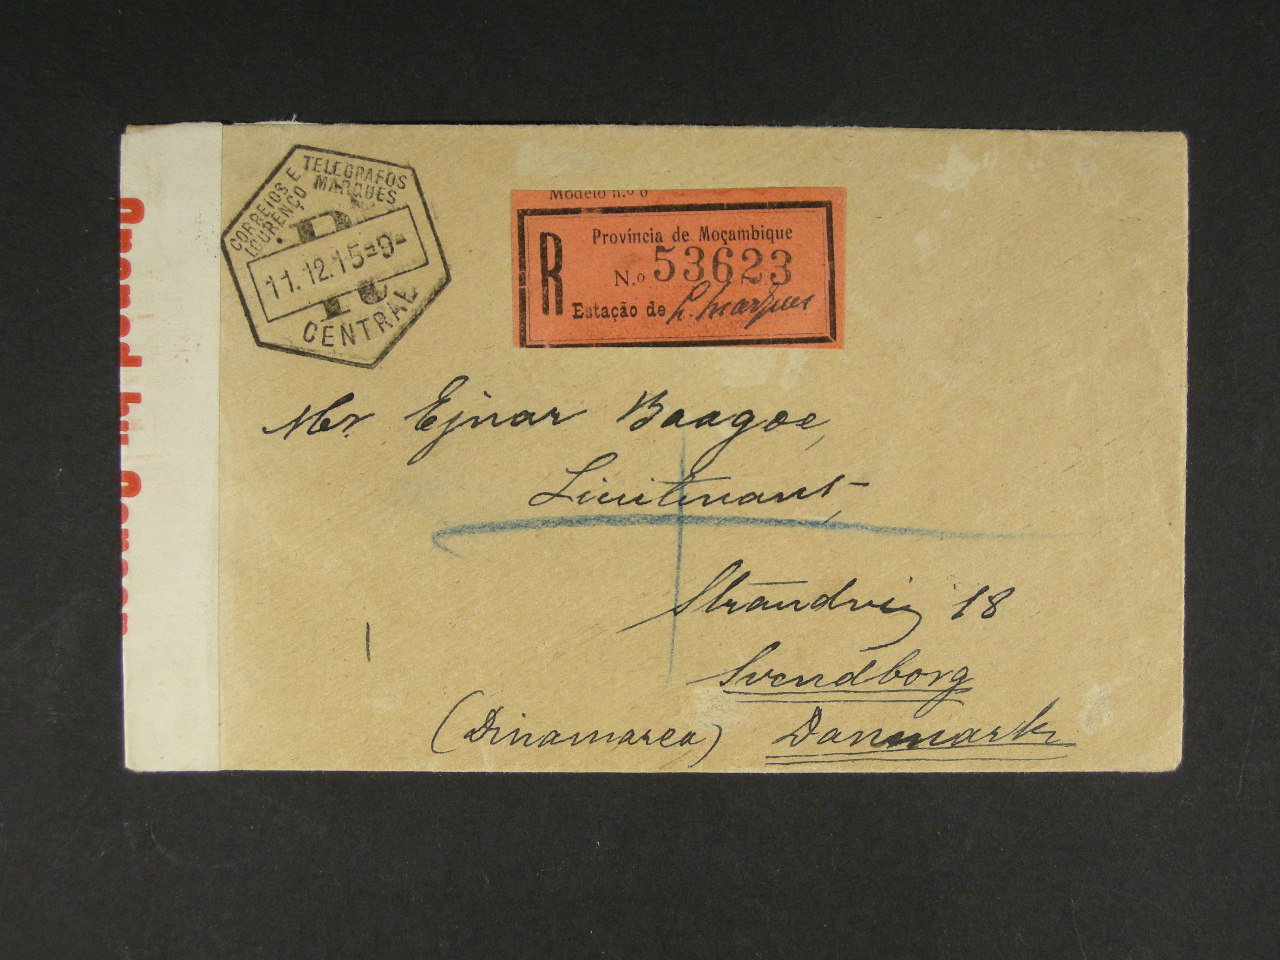 CORREIOS E TELEGRAFOS
LOURENÇO MARQUES
11.12.15=9=
CENTRAL
Modelo n.º 6
Provincia de Moçambique
R
N.o 53623
Estação de L. Marques
Mr. Ejnar Baagoe,
Lieutenant,
Strandvig 18
Svendborg
(Dinamarca) Danmark
Opened by Censor